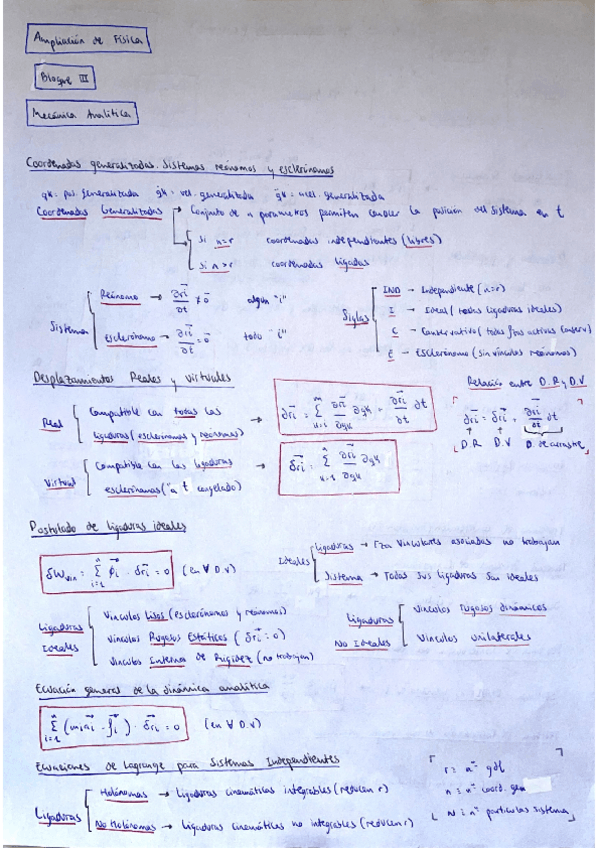 Ampliación de Física
Bloque III
Mecánica Analítica
Coordenadas generalizadas. Sistemas reónomos y esclerónomos
qk = pos. generalizada q̇k = vel. generalizada q̈k = acel. generalizada
Coordenadas Generalizadas → Conjunto de n parametros permiten conocer la posición del sistema en t
si n=r coordenadas independientes (libres)
si n>r coordenadas ligadas
Sistema
Reónomo → ∂r⃗i/∂t ≠ 0⃗ algún "i"
Esclerónomo → ∂r⃗i/∂t = 0⃗ todo "i"
Siglas
IND → Independiente (n=r)
I → Ideal (todas ligaduras ideales)
C → Conservativo (todas fzas activas conserv)
E → Esclerónomo (sin vínculos reónomos)
Desplazamientos Reales y virtuales
Real
Compatible con todas las
ligaduras (esclerónomas y reónomas)
→ ∂r⃗i = Σ ∂r⃗i/∂qk ∂qk + ∂r⃗i/∂t ∂t
Virtual
Compatible con las ligaduras
esclerónomas ("a t congelado)
→ δr⃗i = Σ ∂r⃗i/∂qk ∂qk
Relación entre D.R y D.V
∂r⃗i = δr⃗i + ∂r⃗i/∂t dt
D.R D.V D. de arrastre
Postulado de ligaduras ideales
δWvin = Σ φ⃗i · δr⃗i = 0 (en ∀ D.V)
Ideales
Ligaduras → Fza vinculares asociadas no trabajan
Sistema → Todas sus ligaduras son ideales
Ligaduras Ideales
Vínculos Lisos (esclerónomos y reónomos)
vínculos Rugosos Estáticos (δr⃗i = 0)
vínculos Internos de Rigidez (no trabajan)
Ligaduras No Ideales
vínculos rugosos dinámicos
vínculos unilaterales
Ecuación general de la dinámica analítica
Σ (mia⃗i - f⃗i) · δr⃗i = 0 (en ∀ D.V)
Ecuaciones de Lagrange para Sistemas Independientes
Ligaduras
Holónomas → Ligaduras cinemáticas integrables (reducen r)
No Holónomas → Ligaduras cinemáticas no integrables (reducen r)
r ≡ nº gdl
n ≡ nº coord. gen
N ≡ nº partículas sistema